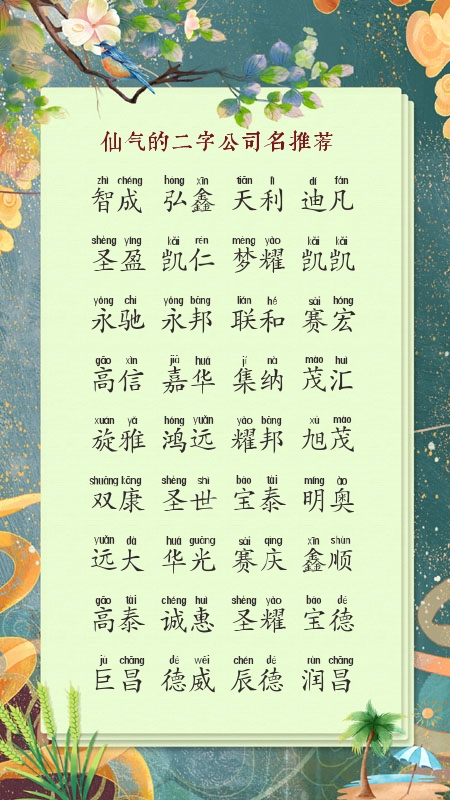 仙气的二字公司名推荐
zhì chéng hóng xīn tiān lì dí fán
智成 弘鑫 天利 迪凡
shèng yíng kǎi rén mèng yào kǎi kǎi
圣盈 凯仁 梦耀 凯凯
yǒng chí yǒng bāng lián hé sài hóng
永驰 永邦 联和 赛宏
gāo xìn jiā huá jí nà mào huì
高信 嘉华 集纳 茂汇
xuán yǎ hóng yuǎn yào bāng xù mào
旋雅 鸿远 耀邦 旭茂
shuāng kāng shèng shì bǎo tài míng ào
双康 圣世 宝泰 明奥
yuǎn dà huá guāng sài qìng xīn shùn
远大 华光 赛庆 鑫顺
gāo tài chéng huì shèng yào bǎo dé
高泰 诚惠 圣耀 宝德
jù chāng dé wēi chén dé rùn chāng
巨昌 德威 辰德 润昌